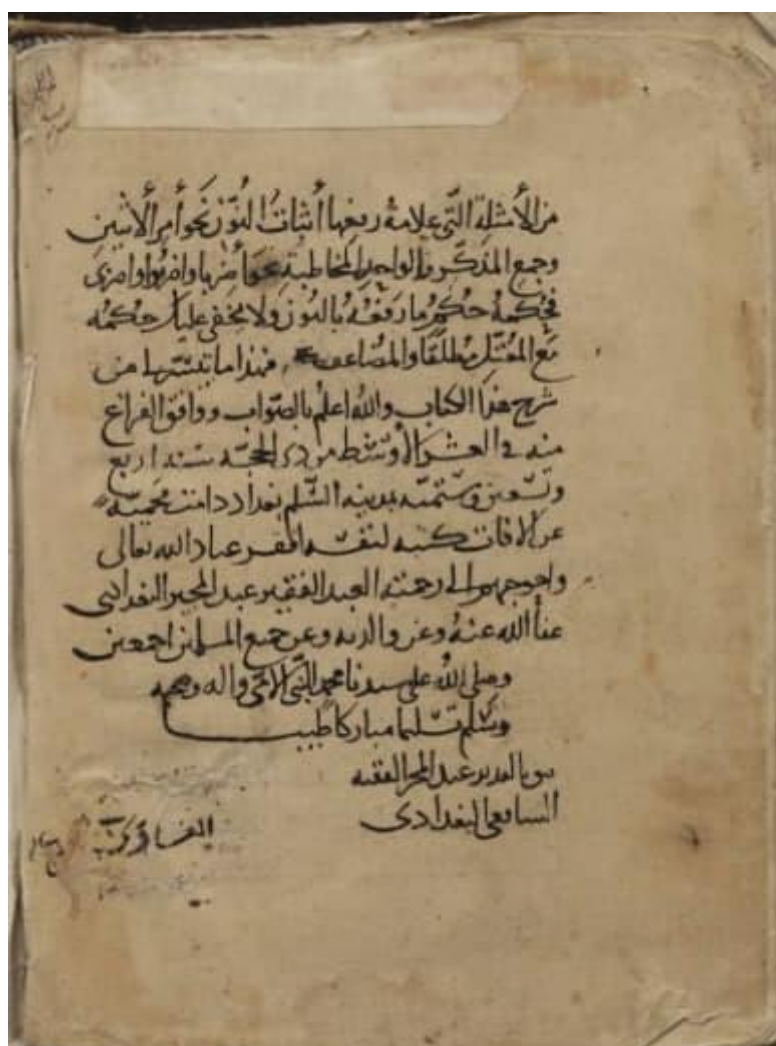 من الأمثلة التي علامة رفعها أثبات النون نحو أمر الاثنين
وجمع المذكر والواحدة المخاطبة نحو أضربا واضربوا واضربي
فحكمه حكم ما رفعه بالنون ولا يخفى عليك حكمه
مع المعتل مطلقا والمضاعف فهذا ما تيسر لنا من
شرح هذا الكتاب والله اعلم بالصواب ووافق الفراغ
منه في العشر الأوسط من ذي الحجة سنة اربع
وتسعين وستمئه بمدينة السلم بغداد دامت محميه
عن الافات كتبه لنفسه افقر عباد الله تعالى
واحوجهم الى رحمته العبد الفقير عبد المجير البغدادي
عفا الله عنه وعن والديه وعن جميع المسلمين اجمعين
وصلى الله على سيدنا محمد النبي الأمي واله وصحبه
وسلم تسليما مباركا طيبا
عبد الفقيه
الشافعي البغدادي